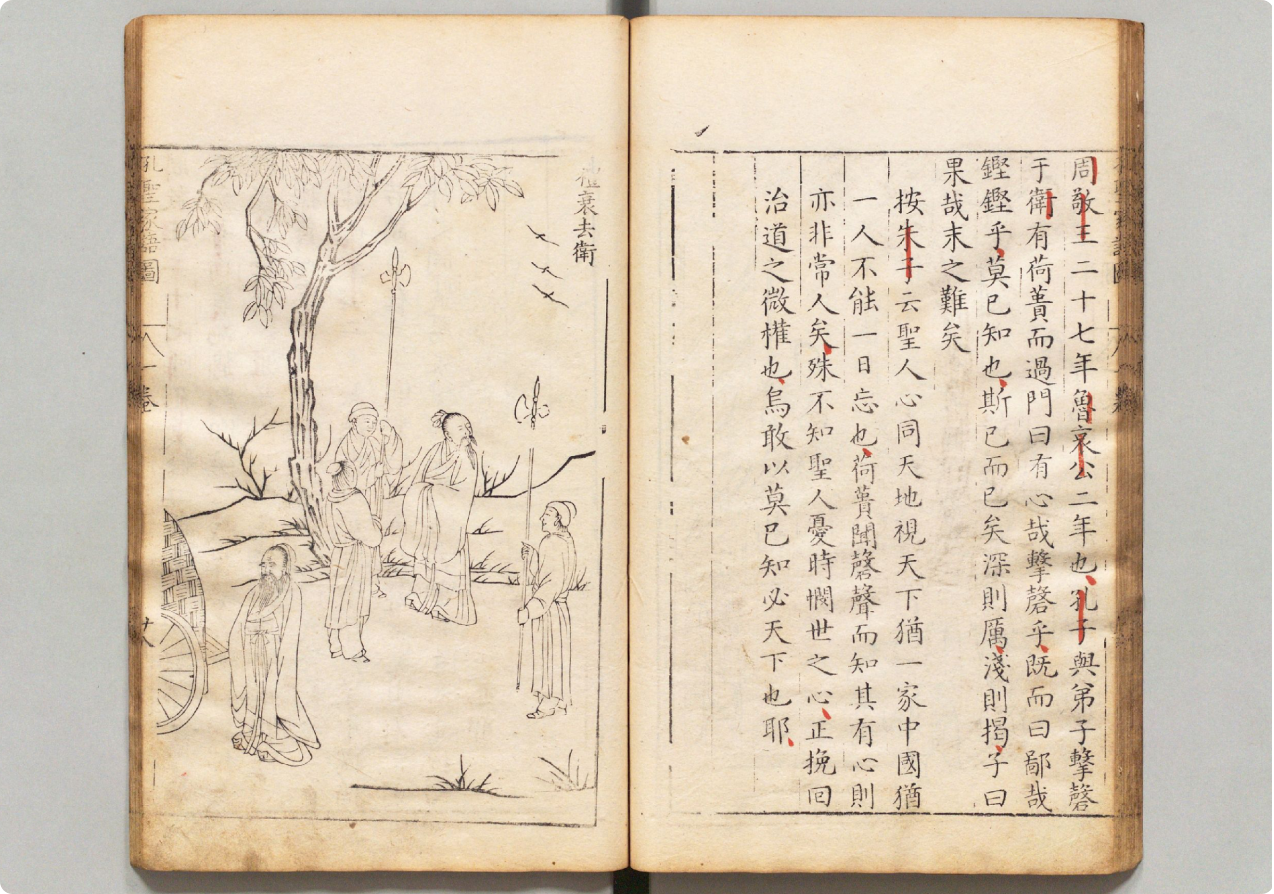 周敬王二十七年魯哀公二年也孔子與弟子擊磬
于衛有荷蕢而過門曰有心哉擊磬乎既而曰鄙哉
鏗鏗乎莫已知也斯已而已矣深則厲淺則揭子曰
果哉末之難矣
按朱子云聖人心同天地視天下猶一家中國猶
一人不能一日忘也荷蕢聞磬聲而知其有心則
亦非常人矣殊不知聖人憂時憫世之心正挽回
治道之微權也烏敢以莫已知必天下也耶
禮衰去衛
孔聖家語圖
卷